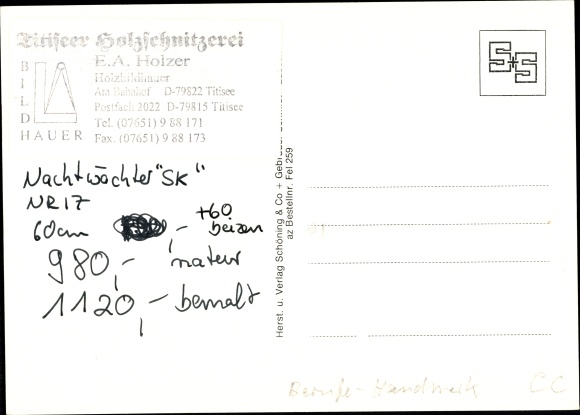 Titiseer Holzschnitzerei
E.A. Holzer
Holzbildhauer
Am Bahnhof D-79822 Titisee
Postfach 2022 D-79815 Titisee
Tel. (07651) 9 88 171
Fax. (07651) 9 88 173
BILD
HAUER
Nachtwächter "SK"
NR 17
60cm ,- +60 beizen
980,- natur
1120,- bemalt
Herst. u. Verlag Schöning & Co + Gebrüder
az Bestellnr. Fel 259
S+S
Berufe - Handwerk CC